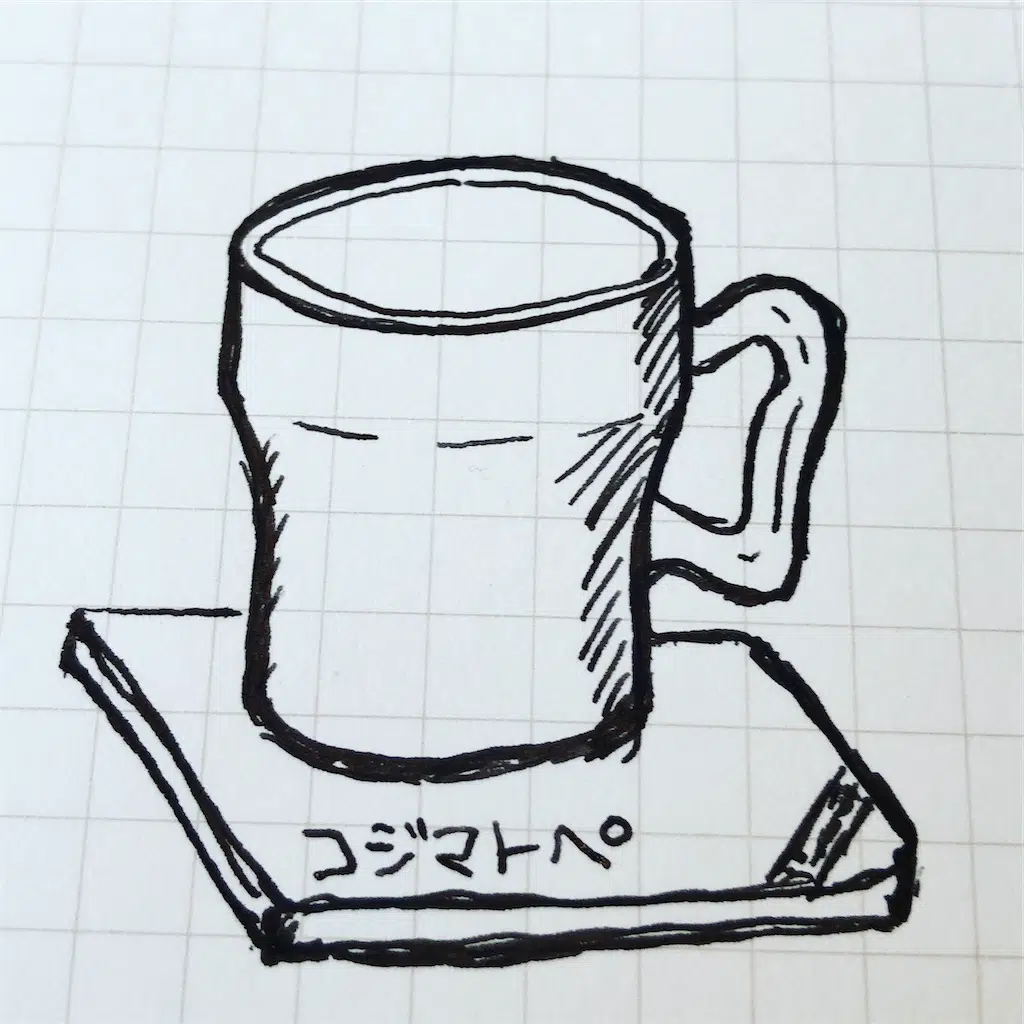 コジマトペ